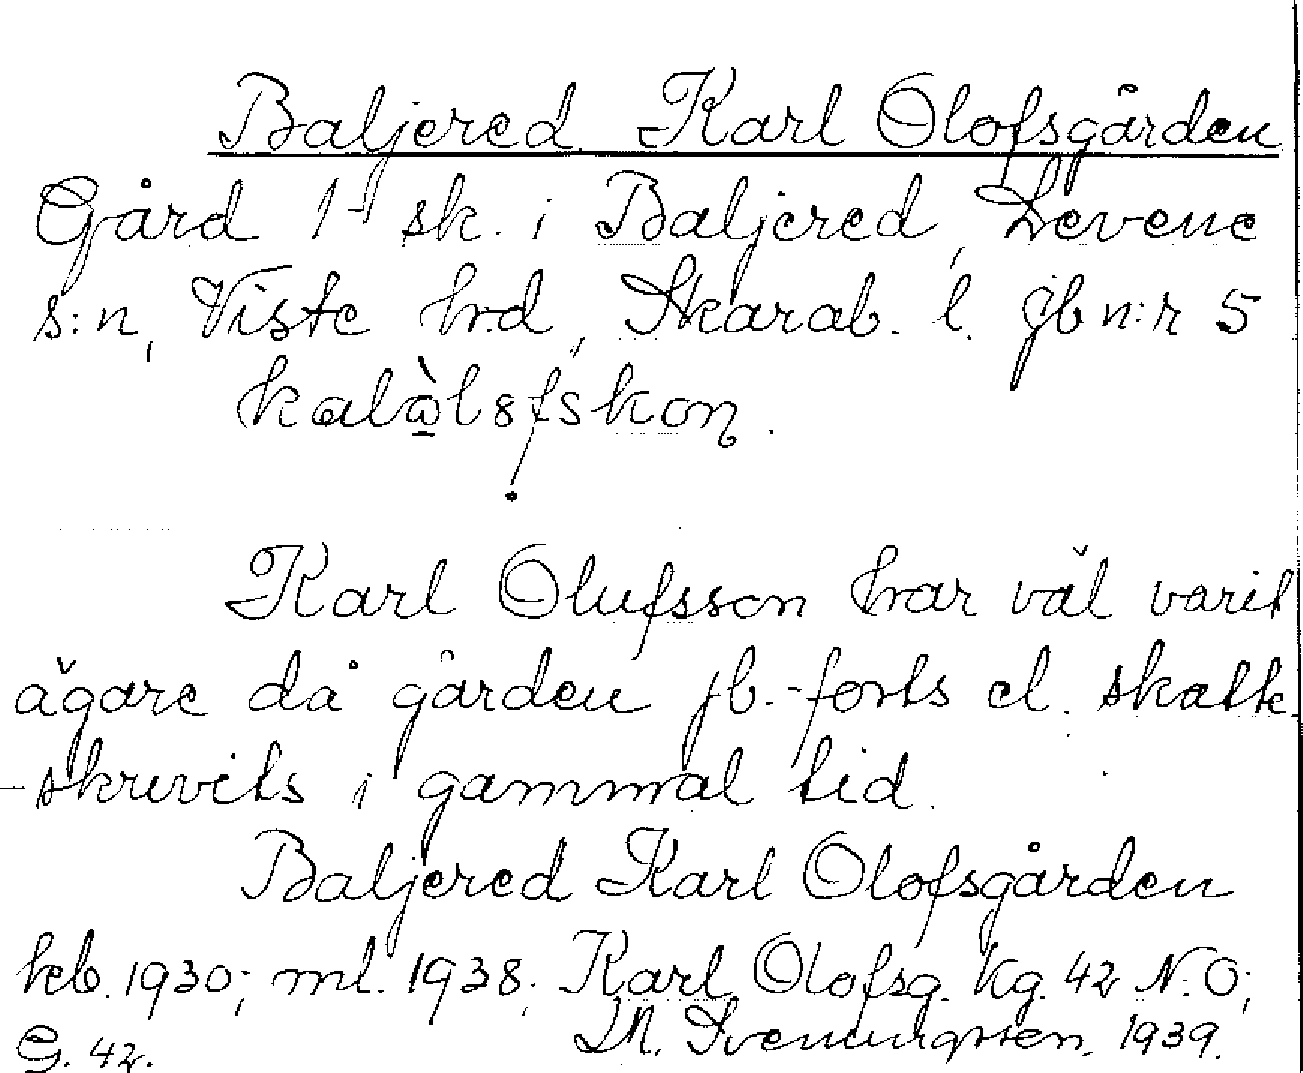 Baljered Karl Olofsgården
Gård 1 sk. i Baljered, Levene
s:n, Viste hrd, Skarab. l. jb n:r 5
Karl Olufsson har väl varit
ägare då gården jb.-förts el. skatt-
-skrivits i gammal tid.
Baljered Karl Olofsgården
kb. 1930; ml. 1938; Karl Olofsg. kg. 42 N.O;
G. 42. M. Sveningsson, 1939.